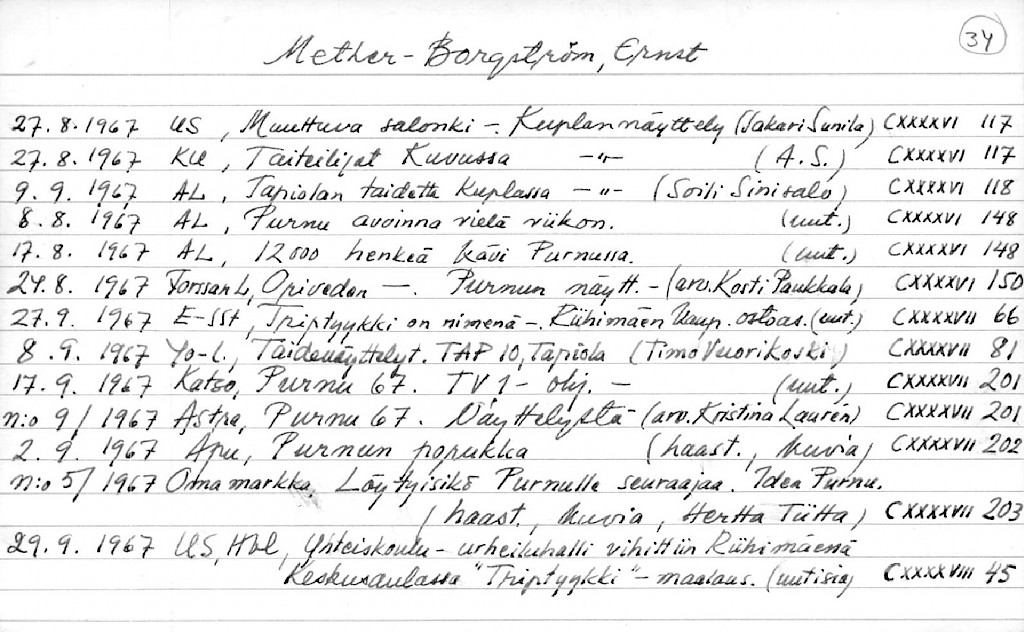 34
Mether-Borgström, Ernst
27.8.1967 US, Muuttuva salonki -. Kuplan näyttely (Sakari Sunila) CXXXXVI 117
27.8.1967 KU, Taiteilijat Kuvussa -"- (A.S.) CXXXXVI 117
9.9.1967 AL, Tapiolan taidetta Kuplassa -"- (Soili Sinisalo) CXXXXVI 118
8.8.1967 AL, Purnu avoinna vielä viikon. (uut.) CXXXXVI 148
17.8.1967 AL, 12000 henkeä kävi Purnussa. (uut.) CXXXXVI 148
24.8.1967 Forssan L, Oriveden -. Purnun näytt. - (arv. Kosti Paukkala) CXXXXVI 150
27.9.1967 E-SSt, Triptyykki on nimenä -. Riihimäen kaup. ostoas. (uut.) CXXXXVII 66
8.9.1967 Yo-l., Taidenäyttelyt. TAP 10, Tapiola (Timo Vuorikoski) CXXXXVII 81
17.9.1967 Katso, Purnu 67. TV 1 - ohj. - (uut.) CXXXXVII 201
n:o 9/1967 Astra, Purnu 67. Näyttelystä (arv. Kristina Laurén) CXXXXVII 201
2.9.1967 Apu, Purnun porukka (haast., kuvia) CXXXXVII 202
n:o 5/1967 Oma markka, Löytyisikö Purnulle seuraajaa. Idea Purnu.
(haast., kuvia, Hertta Tiitta) CXXXXVII 203
29.9.1967 US, Hbl, Yhteiskoulu- urheiluhalli vihittiin Riihimäenä
Keskusaulassa "Triptyykki" - maalaus. (uutisia) CXXXXVIII 45